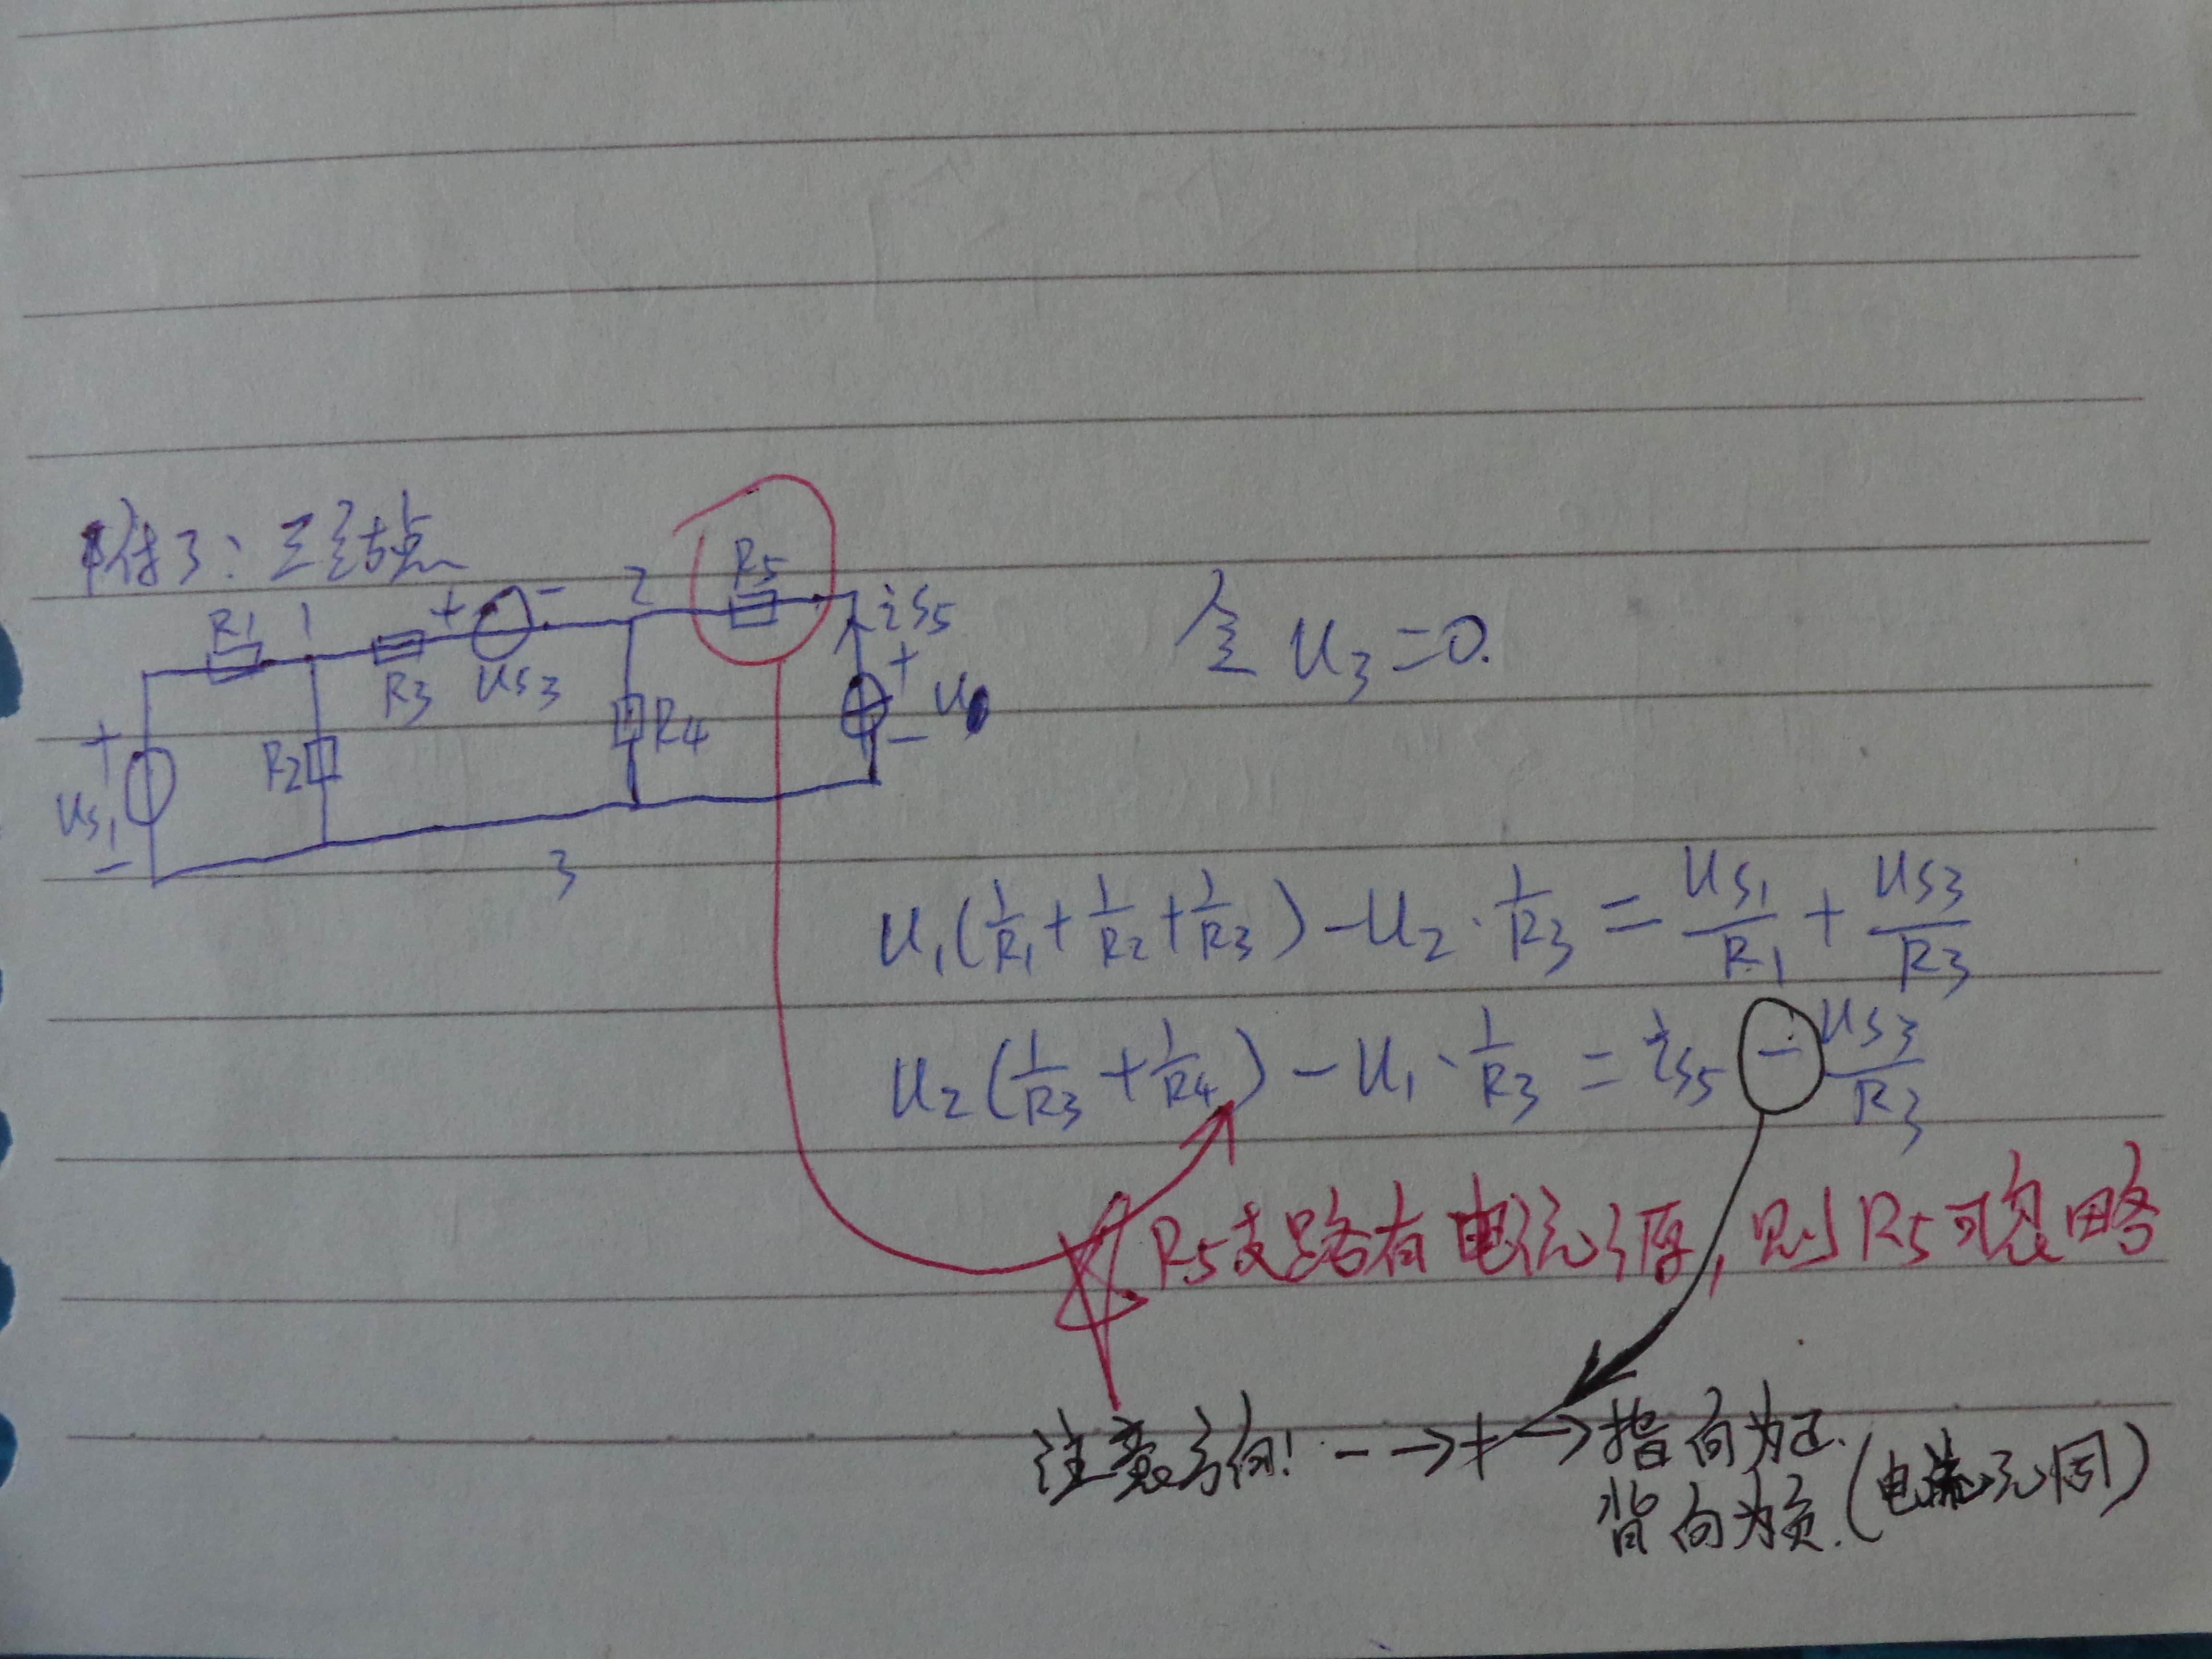 例3：三结点
R1 1 R3 + uS3 - 2 R5 iS5
+ uS1 - R2 R4 + u -
3
令 u₃=0.
u₁(1/R₁+1/R₂+1/R₃)-u₂·1/R₃=uS₁/R₁+uS₃/R₃
u₂(1/R₃+1/R₄)-u₁·1/R₃=iS₅-uS₃/R₃
R5支路有电流源，则R5可忽略
注意方向！--→+→指向为正.
背向为负.(电流源同)